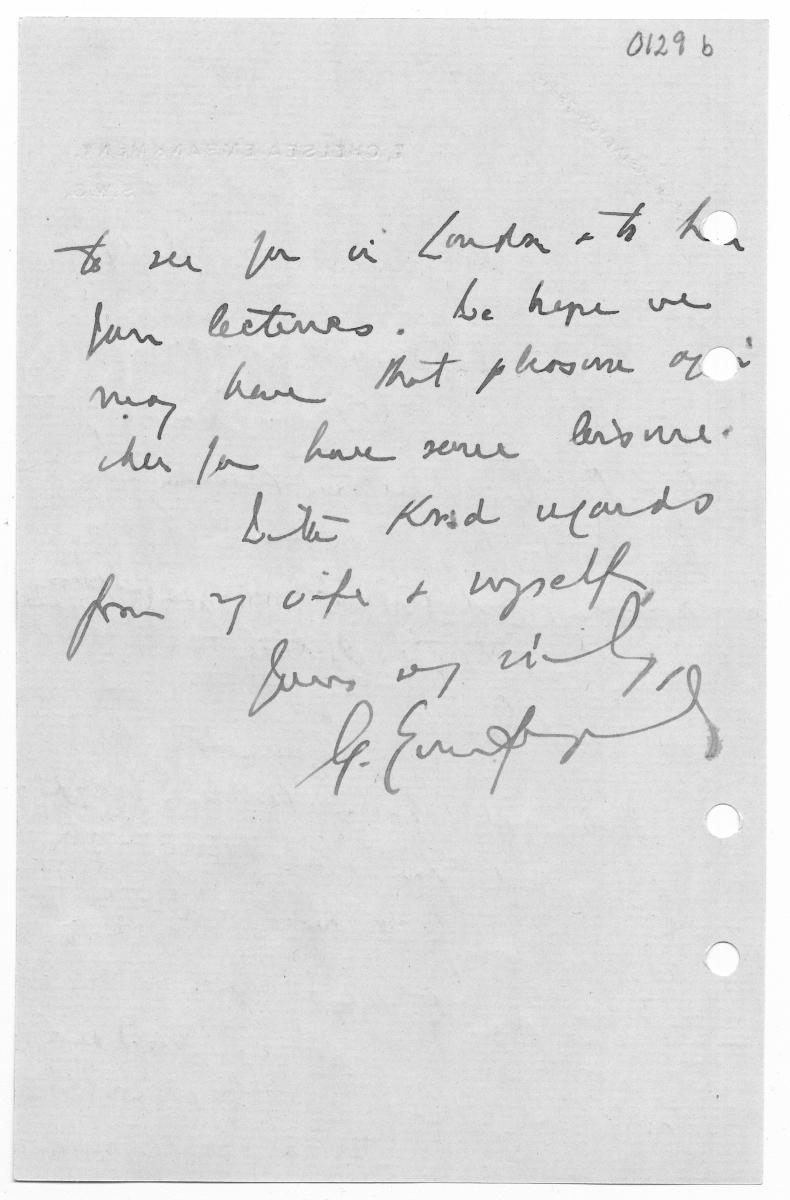 0129 b
to see you in London & to hear
your lectures. We hope we
may have that pleasure again
when you have some leisure.
With Kind regards
from my wife & myself,
Yours very sincerely,
G.